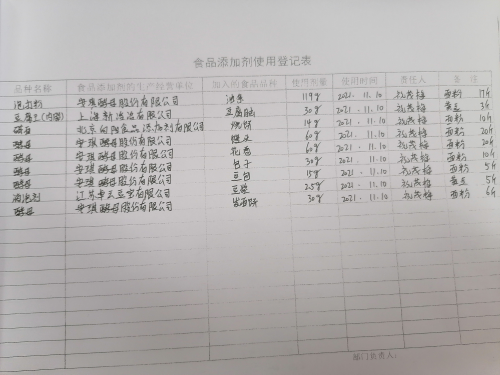 食品添加剂使用登记表
品种名称 食品添加剂的生产经营单位 加入的食品品种 使用剂量 使用时间 责任人 备注
泡打粉 安琪酵母股份有限公司 油条 119g 2021.11.10 面粉 17斤
上海 有限公司 豆腐脑 30g 2021.11.10 黄豆 3斤
酵母 北京 食品添加剂有限公司 烧饼 14g 2021.11.10 面粉 10斤
酵母 安琪酵母股份有限公司 馒头 60g 2021.11.10 面粉 20斤
酵母 安琪酵母股份有限公司 花卷 60g 2021.11.10 面粉 20斤
酵母 安琪酵母股份有限公司 包子 30g 2021.11.10 面粉 10斤
酵母 安琪酵母股份有限公司 豆包 15g 2021.11.10 面粉 5斤
消泡剂 江苏 有限公司 豆浆 25g 2021.11.10 黄豆 5斤
酵母 安琪酵母股份有限公司 发面饼 30g 2021.11.10 面粉 6斤
部门负责人: